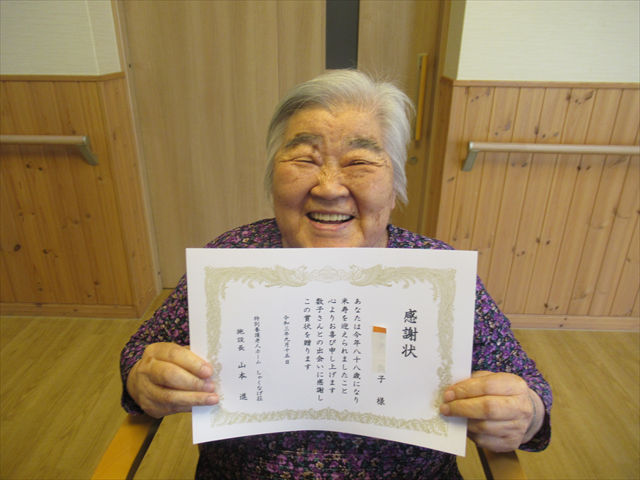 感謝状
子 様
あなたは今年八十八歳になり
米寿を迎えられましたこと
心よりお喜び申し上げます
数子さんとの出会いに感謝し
この賞状を贈ります
令和三年九月十五日
特別養護老人ホーム しゃくなげ荘
施設長 山本 進